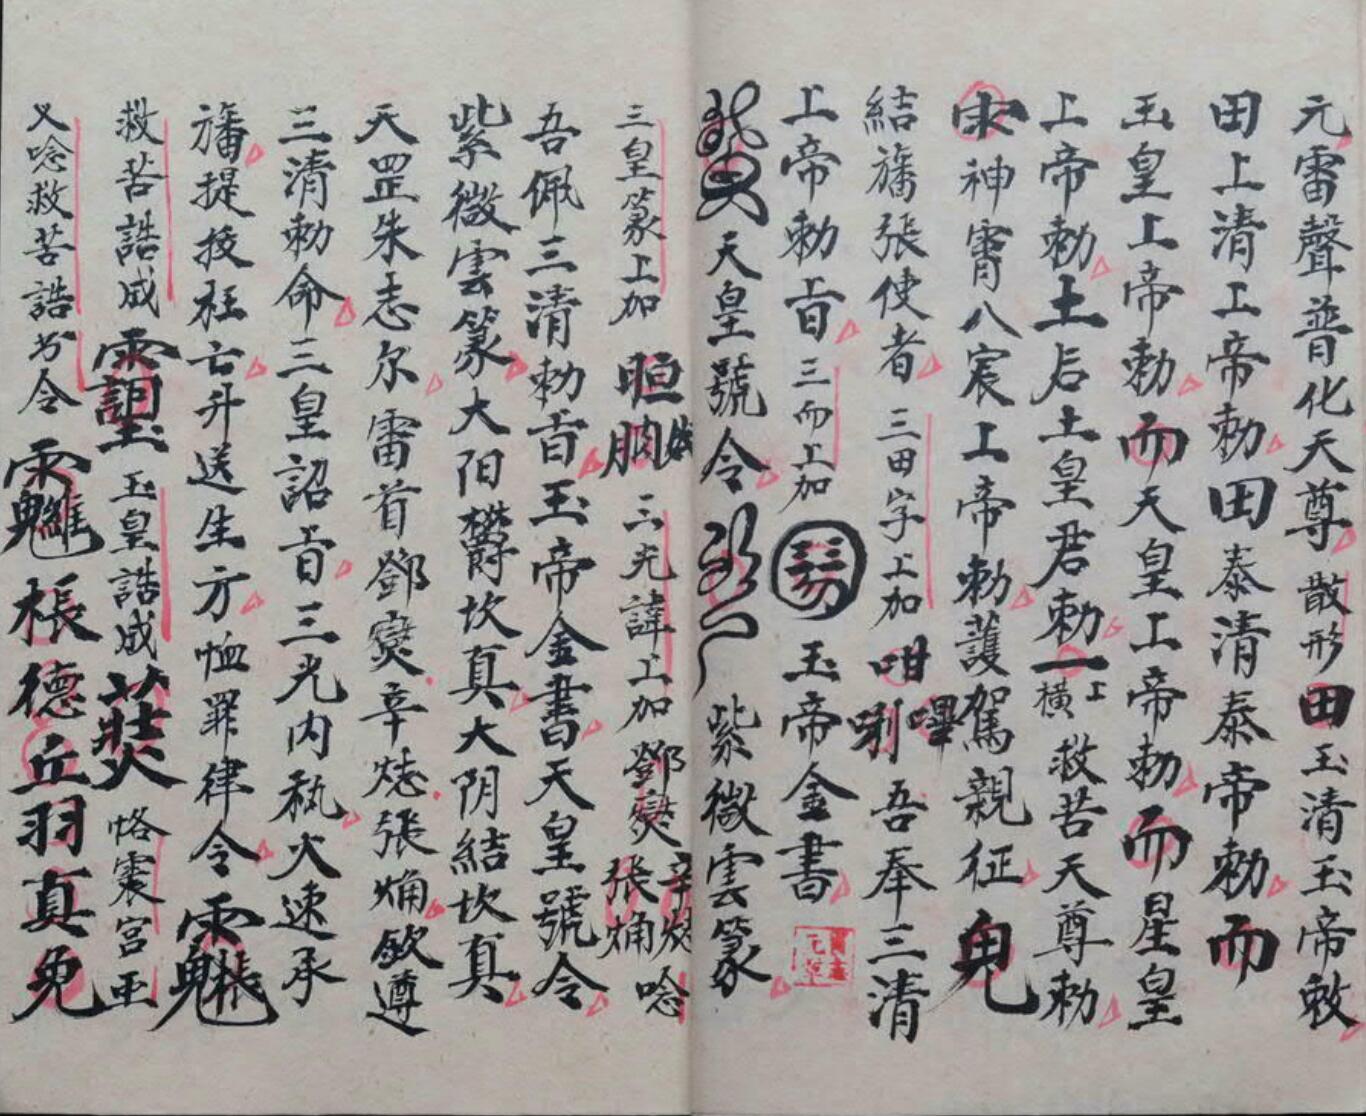 元雷聲普化天尊散形田玉清玉帝敕
田上清上帝勅田泰清泰帝勅而
玉皇上帝勅而天皇上帝勅而星皇
上帝勅土后土皇君勅一橫上救苦天尊勅
神霄八宸上帝勅護駕親征
結旛張使者三田字上加咁唎嗶吾奉三清
上帝勅旨三而上加玉帝金書
天皇號令紫微雲篆
三皇篆上加三光諱上加鄧燮辛張唸
吾佩三清勅旨玉帝金書天皇號令
紫微雲篆大阳欝坎真大阴結坎真
天罡朱志尔雷首鄧燮辛張欽遵
三清勅命三皇詔旨三光内秇火速承
旛提授枉亡升送生方恤罪律令
救苦誥成玉皇誥成恪震宮
又唸救苦誥另令棖德丘羽真免